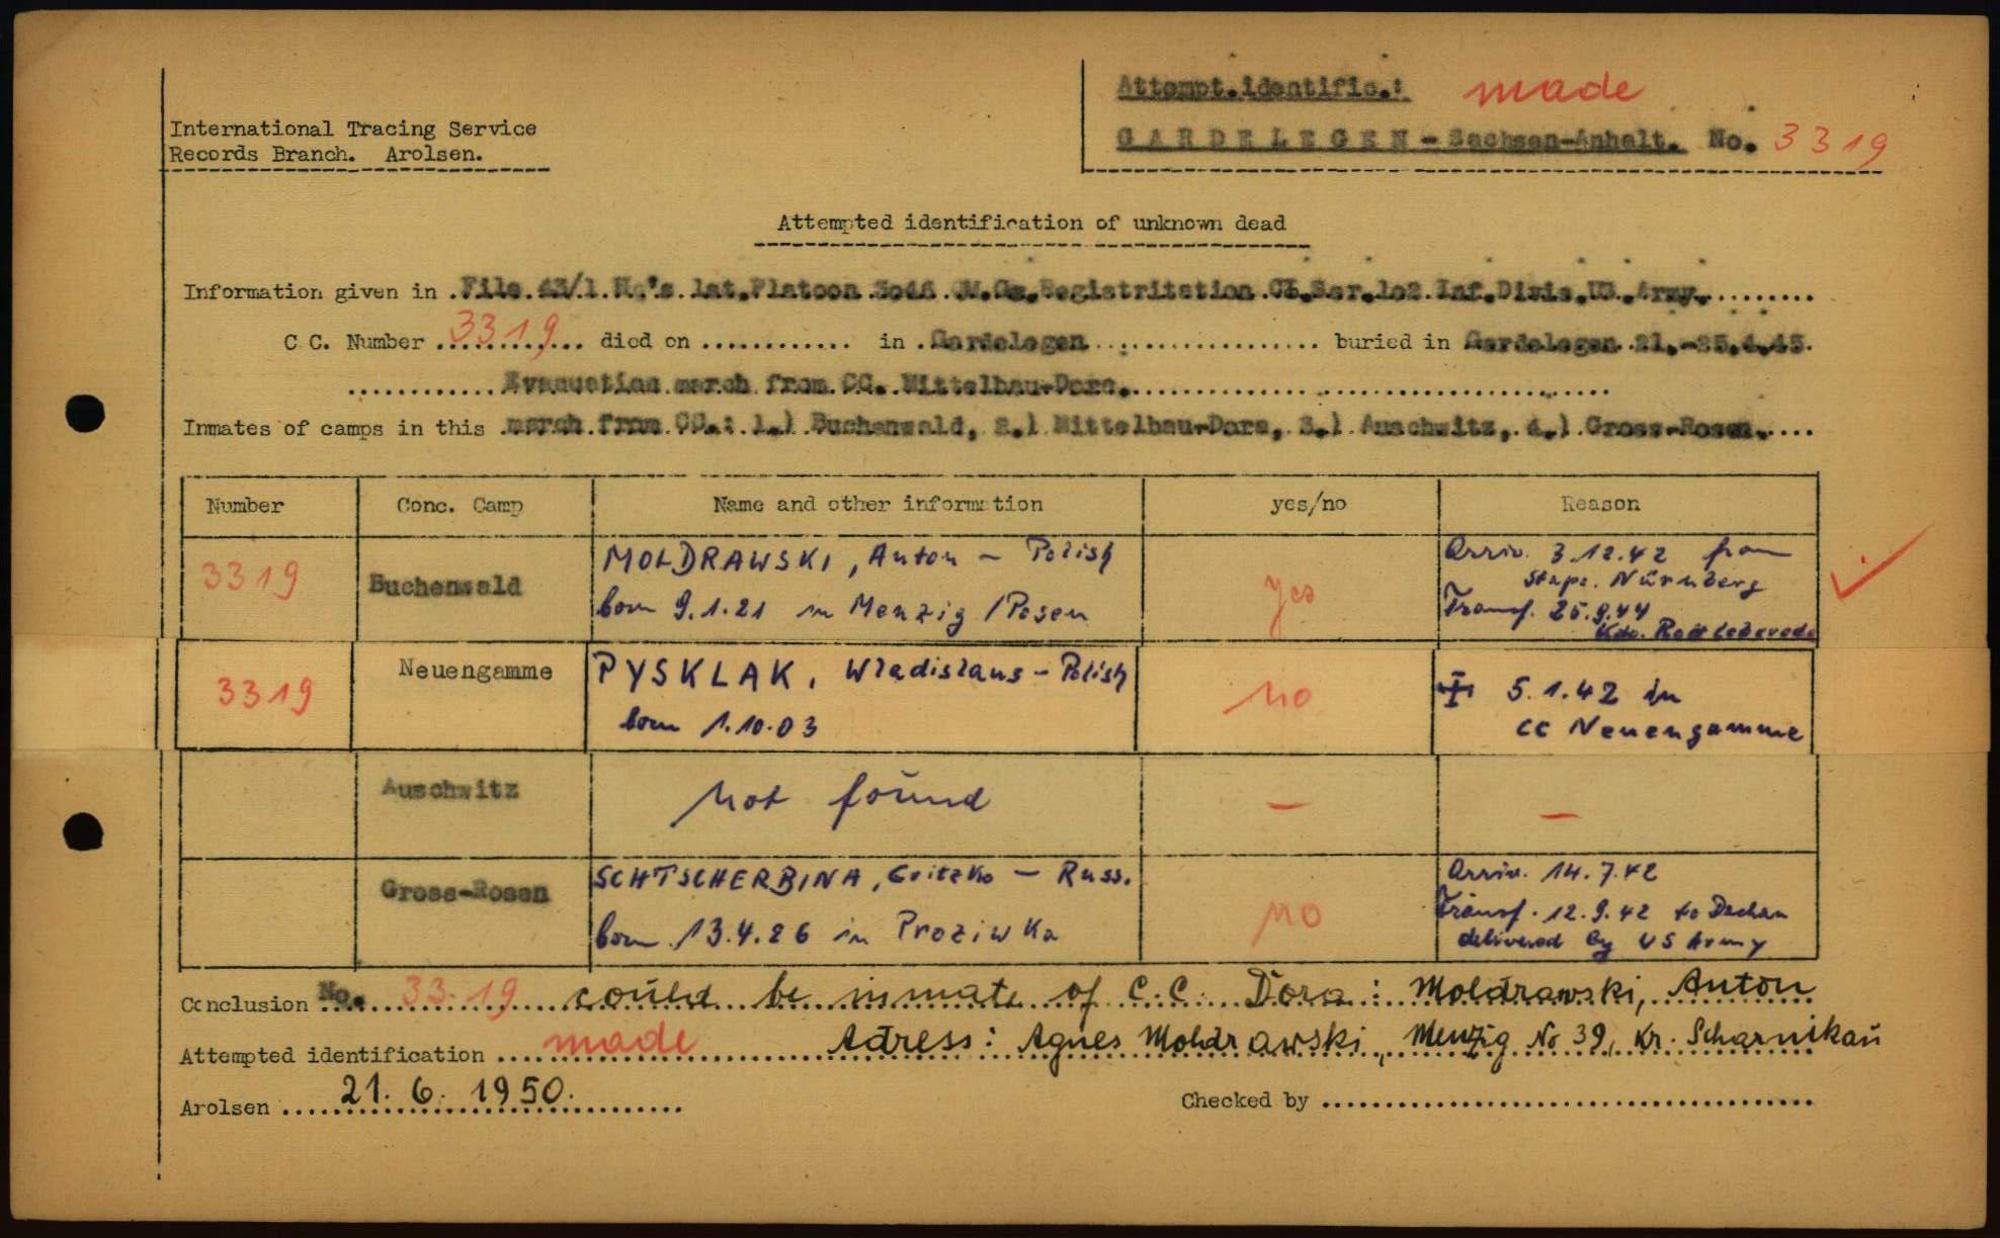 Attempt.identific.: made
International Tracing Service
Records Branch. Arolsen.
GARDELEGEN - Sachsen-Anhalt. No. 3319
Attempted identification of unknown dead
Information given in .File.43/1.Hq's.1st.Platoon 3046 QM.Gs.Registritation CI.Ser.1o2 Inf.Divis.US.Army.........
C C. Number 3319 died on ............ in .Gardelegen .................... buried in Gardelegen 21.-25.4.45.
.............Evacuation march from CC. Mittelbau-Dora.......................................
Inmates of camps in this .march.from.CC.: 1.) Buchenwald, 2.) Mittelbau-Dora, 3.) Auschwitz, 4.) Gross-Rosen.....
Number Conc. Camp Name and other information yes/no Reason
3319 Buchenwald MOLDRAWSKI, Anton - Polish yes Arriv. 3.12.42 from
Stapo. Nürnberg
born 9.1.21 in Menzig /Posen Transf. 25.9.44
Kdo.
3319 Neuengamme PYSKLAK, Wladislaus - Polish no 5.1.42 in
born 1.10.03 CC Neuengamme
Auschwitz not found - -
Gross-Rosen SCHTSCHERBINA, Gritzko - Russ. no Arriv. 14.7.42
born 13.4.26 in Proziwka Transf. 12.9.42 to Dachau
delivered by US Army
Conclusion No. 3319 could be inmate of C.C. Dora: Moldrawski, Anton
Attempted identification .... made Adress: Agnes Moldrawski, Menzig No 39, Kr. Scharnikau
Arolsen .... 21. 6. 1950. Checked by ........................................